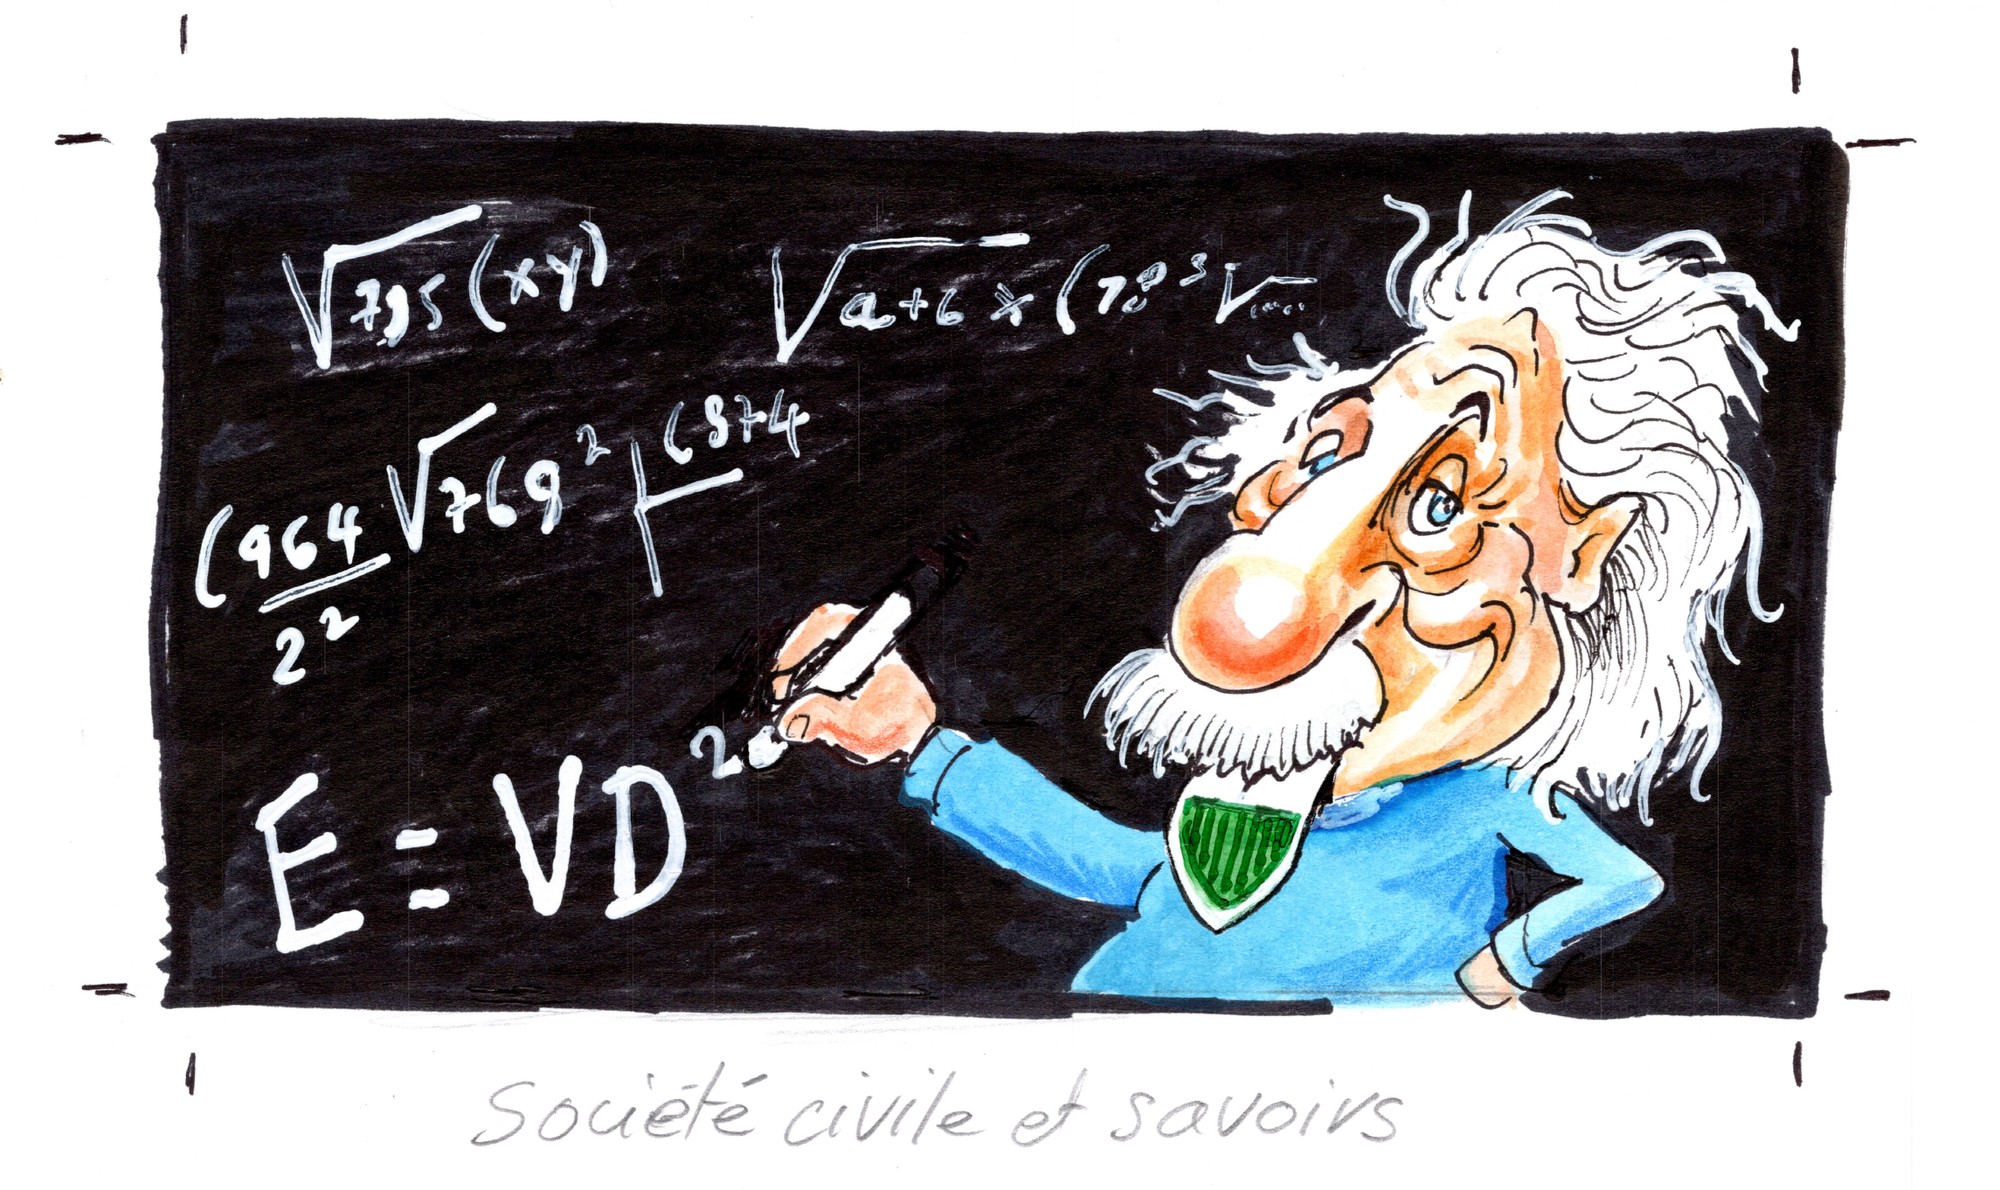 √795 (xy)
√a+b x (78³√
(964/2² √769² (874
E = VD²
Société civile et savoirs